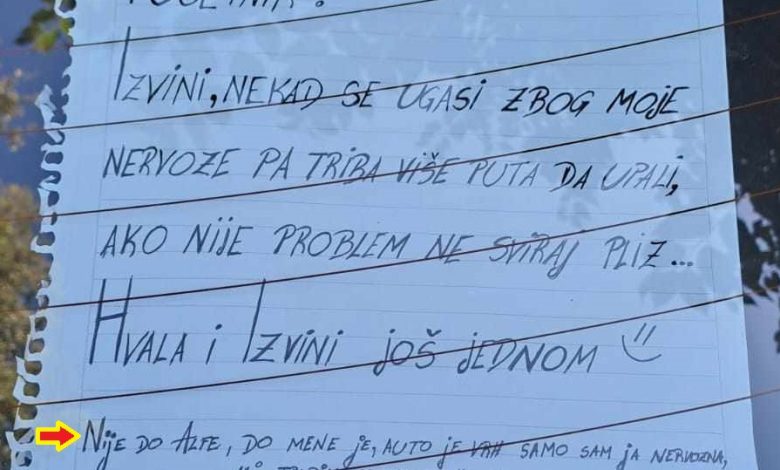 POČETNIK!
IZVINI, NEKAD SE UGASI ZBOG MOJE
NERVOZE PA TRIBA VIŠE PUTA DA UPALI,
AKO NIJE PROBLEM NE SVIRAJ PLIZ...
HVALA I IZVINI JOŠ JEDNOM
NIJE DO ALFE, DO MENE JE, AUTO JE VRH SAMO SAM JA NERVOZNA,